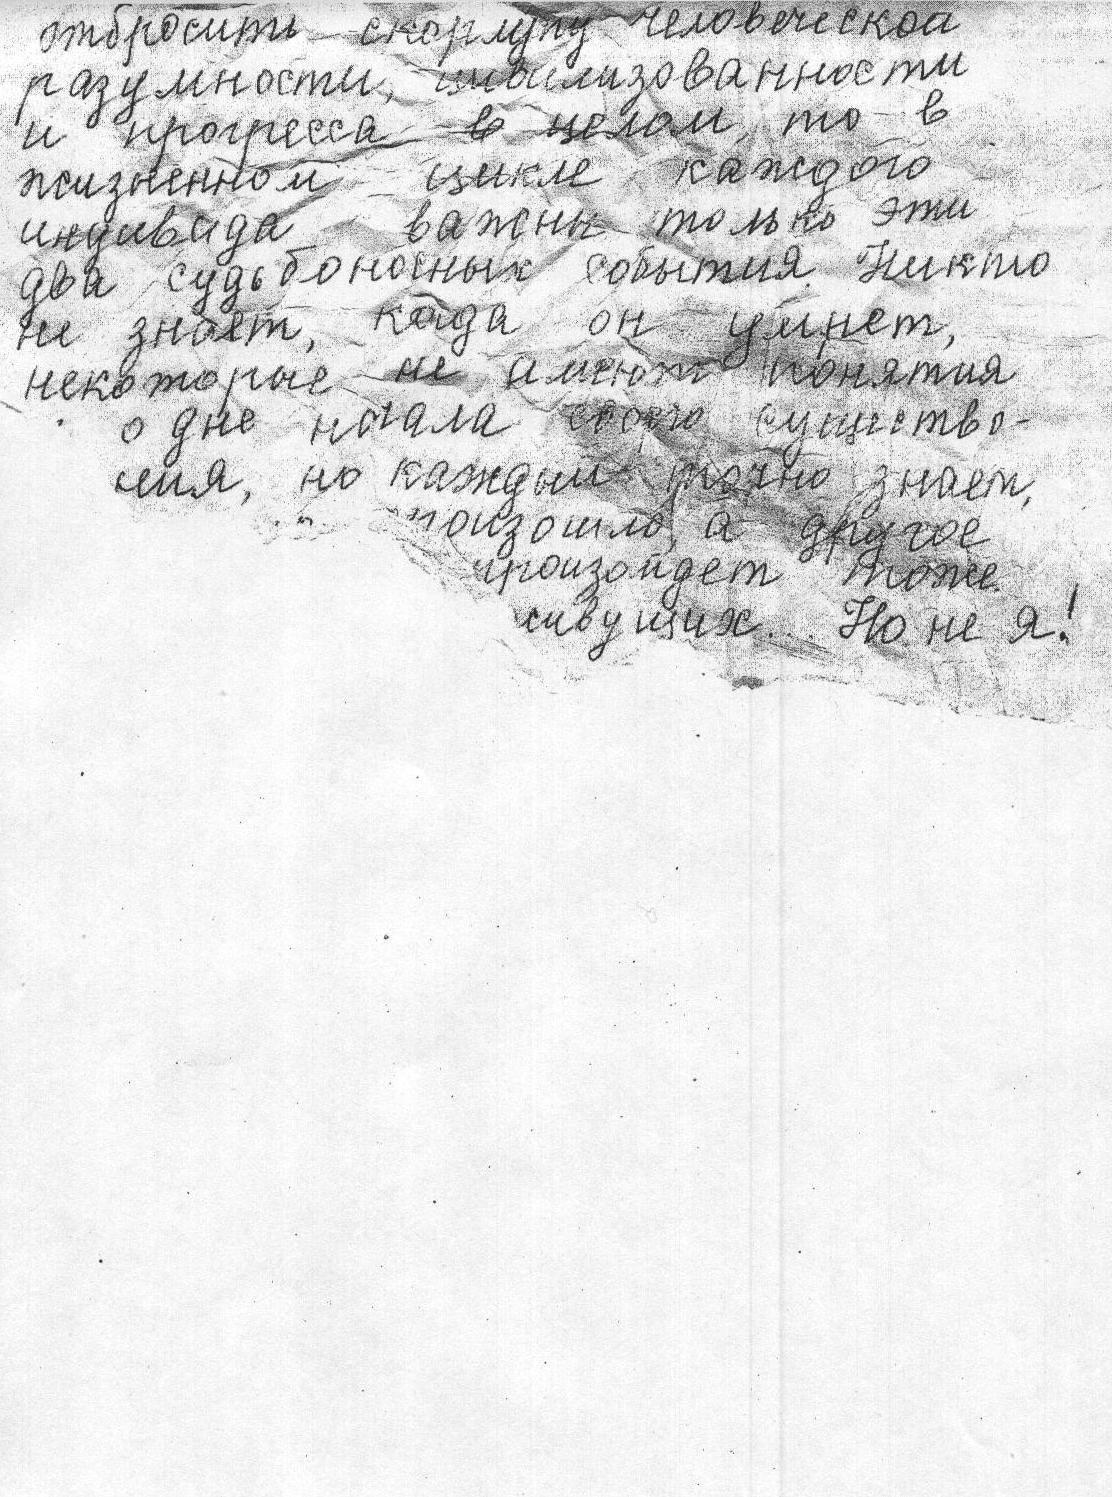 отбросить скорлупу человеческой
разумности, цивилизованности
и прогресса в целом, то в
жизненном цикле каждого
индивида важны только эти
два судьбоносных события. Никто
не знает, када он умнет,
некоторые не имеют понятия
о дне начала своего существо-
ния, но каждый точно знает,
поизошло, а другое
произойдет тоже.
живущих... Но не я!